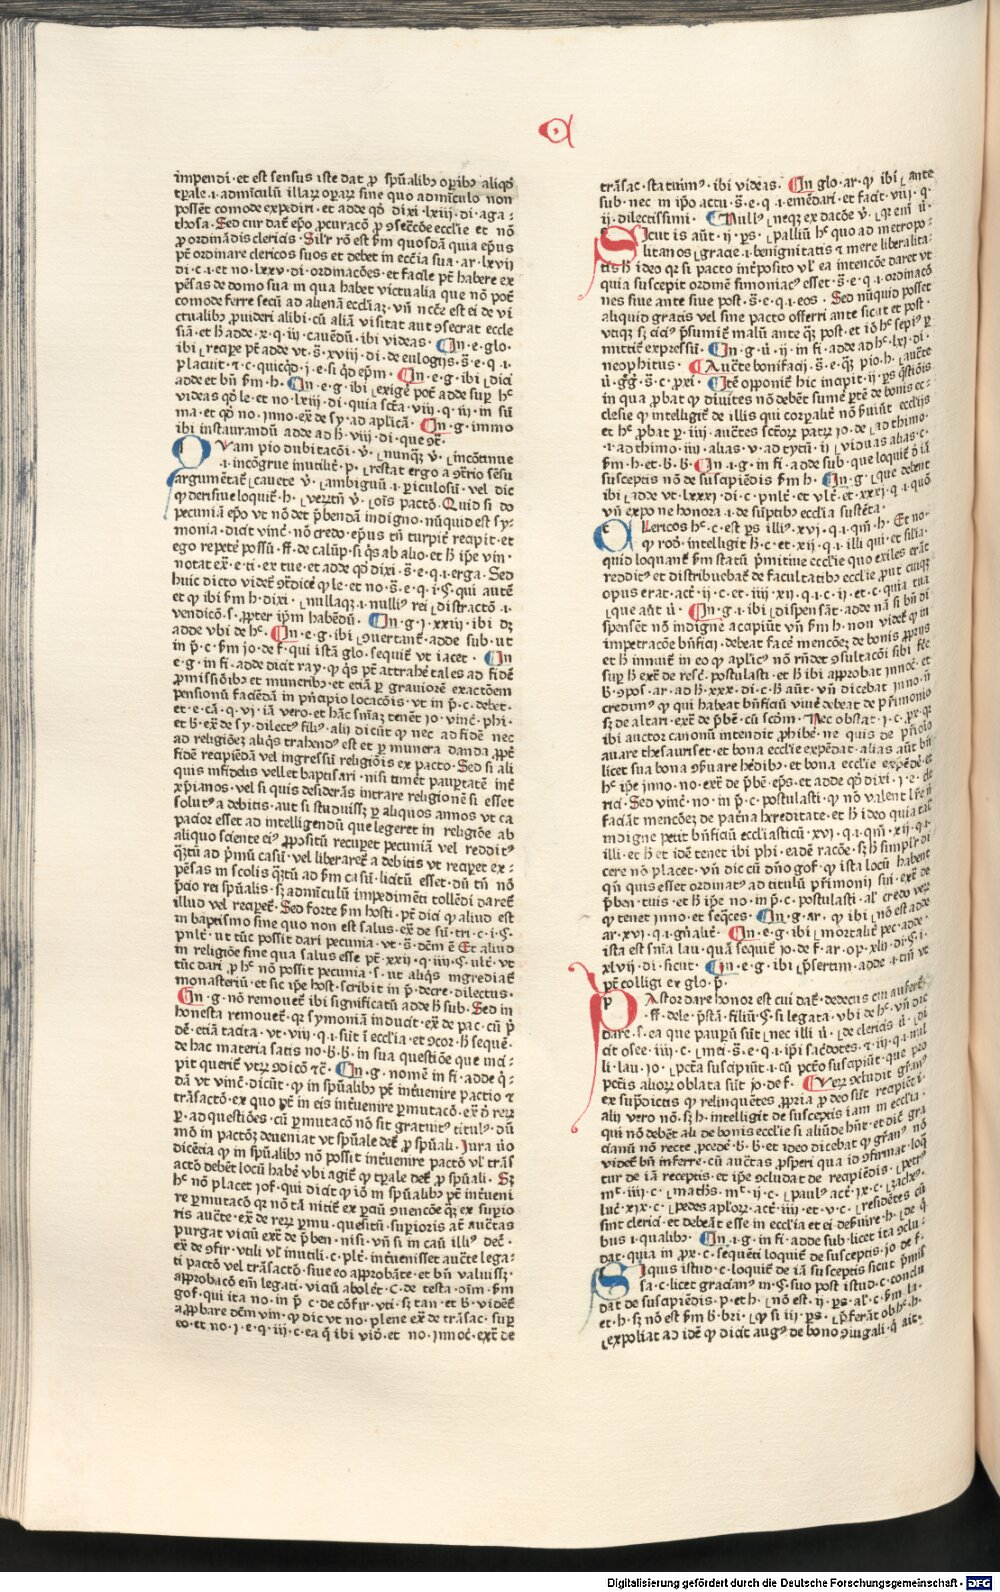 impendi · et est sensus iste dat ꝓ spũalibꝫ oꝑibꝫ aliqđ
tꝑale · i · adminiculũ illaꝝ oꝑaꝝ sine quo adminiculo non
possẽt comode expediri · et adde qđ dixi · lxiii · di · aga⸗
thosa · Sed cur dat̃ epo ꝓcuracõ ꝓ ꝯsecrõe ecclie et nõ
ꝓ ordinãdis clericis · Silr̃ rõ est ẜm quosdã quia ep̃us
pt̃ ordinare clericos suos et debet in ecc̃ia sua · ar · lxvii
di · c · i · et no · lxxv · di · ordinacões · et facile pt̃ habere ex
pẽsas de domo sua in qua habet victualia que nõ pot̃
comode ferre secũ ad alienã eccl̃iaꝝ · vñ nccẽ est ei de vi
ctualibꝫ ꝓuideri alibi · cũ aliã visitat aut ꝯsecrat eccle
siã · et h̃ adde · x · q · iii · cauendũ · ibi videas · In · e · glo ·
ibi recipe pt̃ adde vt · s̃ · xviii · di · de eulogijs · s̃ · e · q · i ·
placuit · et · c · quicqꝫ · j · e · si qđ ep̃m · In · e · g · ibi dici
adde et bñ ẜm · h · In · e · g · ibi exige pot̃ adde suꝑ hͨ
videas qđ le · et no · lxiii · di · quia sc̃ta · viii · q · iii · in sũ
ma · et qđ no · jnno · ex̃ de sy · ad aplicã · In · g · immo
ibi instaurandũ adde ad h̃ · viii · di · que ꝯr̃ ·
Quam pio dubitacõi · v̊ · nunqꝫ v̊ · incõtinue
i · incõgrue inutilit̃ · p · restat ergo a ꝯr̃io sẽsu
argumẽtat̃ cauete v̊ · ambiguũ · i · ꝑiculosũ · vel dic
ꝙ derisiue loquit̃ · h · vertrñ v̊ · oĩs pactõ · Quid si do
pecuniã epo vt nõ det p̃bendã indigno · nũquid est sy⸗
monia · dicit vinc̃ · nõ credo · ep̃us tñ turpit̃ recipit · et
ego repetẽ possũ · ff · de calũp · si q̃s ab alio · et h̃ ip̃e vin ·
notat ex̃ · e · ti · ex tue · et adde qđ dixi · s̃ · e · q · i · erga · Sed
huic dicto videt̃ ꝯr̃dicẽ ꝙ le · et no · s̃ · e · q · i · §· qui autẽ
et ꝙ ibi ẜm h · dixi · nullaqꝫ · i · nulliꝰ rei distractõ · i ·
vendicõ · s · ꝓpter ip̃m habẽdũ · In · g · j · xxiii · ibi dꝫ
adde vbi de hͨ · In · e · g · ibi ꝯuertant̃ · adde sub · ut
in p̃ · c · ẜm jo · de f · qui istã glo · sequit̃ vt iacet · In
e · g · in fi · adde dicit ray · ꝙ q̃s pt̃ attrahẽ tales ad fidẽ
ꝓmissiõibꝫ et muneribꝫ · et etiã ꝑ grauiorẽ exactõem
pensionũ faciẽdã in p̃ncipio locacõis · vt in p̃ · c · debet ·
et · e · cã · q · vi · iã vero · et hãc sñiaꝫ tenẽt jo · vinc̃ · phi ·
et b · ex̃ de sy · dilectꝰ filiꝰ · alij dicũt ꝙ nec ad fidẽ nec
ad religiõeꝫ aliq̃s trahendꝰ est et ꝑ munera danda · ꝓpt̃
fidẽ recipiẽdã vel ingressũ religiõis ex pacto · Sed si ali
quis infidelis vellet baptisari · nisi timẽt pauꝑtatẽ int̃
xp̃ianos · vel si quis desiderãs intrare religionẽ si esset
solutꝰ a debitis · aut si studuissꝫ ꝑ aliquos annos vt ca
pacior esset ad intelligendũ que legeret in religiõe ab
aliquo sciente eiꝰ ꝓpositũ recuꝑet pecuniã vel redditꝰ
qͣꝫtũ ad p̃mũ casũ · vel liberaret̃ a debitis vt reciꝑet ex⸗
pẽsas in scolis qͣꝫtũ ad ẜm casũ · licitũ esset · dũ tñ nõ
p̃cio rei spũalis · sꝫ adminiculũ impedimẽti tollẽdi daret̃
illud vel reciꝑet̃ · Sed forte ẜm hosti · pt̃ dici ꝙ aliud est
in baptismo sine quo non est salus · ex̃ de sũ · tri · c · i · §·
pnlt̃ · ut tũc possit dari pecunia · vt · s̃ · dẽm ẽ Et aliud
in religiõe sine qua salus esse pt̃ · xxii · q · iiii · §· ult̃ · vt
tũc dari · ꝓ hͨ nõ possit pecunia · s · ut aliq̃s ingrediat̃
monasteriũ · et sic ip̃e host · scribit in p̃ · decre · dilectus ·
In · g · nõ remouet̃ ibi significatũ adde h̃ sub · Sed in
honesta remouet̃ · qꝛ symoniã inducit · ex̃ de pac · cũ p̃
dẽ · etiã tacita · vt · viii · q · i · sũt ĩ ecclia · et ꝯcor · h̃ sequẽ ·
de hac materia satis no · b · b · in sua questiõe que inci⸗
pit querit̃ vtꝝ ꝯdicõ etc̃ · In · g · nomẽ in fi · adde q̃⸗
dã vt vinc̃ · dicũt · ꝙ in spũalibꝫ pt̃ int̃uenire pactio et
trãsactõ · ex quo pt̃ in eis int̃uenire ꝑmutacõ · ex õ reꝝ
ꝑ · ad questiões · cũ ꝑmutacõ nõ sit gratuitꝰ titulꝰ · dũ
mõ in pactõꝫ deueniat vt spũale det̃ ꝓ spũali · Jura v̊o
dicẽtia ꝙ in spũalibꝫ nõ possit int̃uenire pactõ vl̃ trãs
actõ debẽt locũ habẽ vbi agit̃ ꝙ tꝑale det̃ ꝓ spũali · Sꝫ
hͨ nõ placet jof · qui dicit ꝙ iõ in spũalibꝫ pt̃ int̃ueni
re ꝑmutacõ qꝛ nõ tã nitit̃ ex ꝑciũ ꝯuencõe qͣꝫ ex suꝑio
ris auct̃e · ex̃ de reꝝ ꝑmu · quesitũ · suꝑioris at̃ auct̃as
purgat viciũ ex̃ de p̃ben · nisi · vñ si in caũ illiꝰ dec̃ ·
ex̃ de ꝯfir · vtili vl̃ inutili · c · plt̃ · int̃uenisset auct̃e lega⸗
ti pactõ vel trãsactõ · siue eo approbãte · et bñ valuissꝫ ·
approbacõ em̃ legati · viciũ abolet̃ · C · de testa · oĩm · ẜm
gof · qui ita no · in p̃ · c · de cõfir · vti · sꝫ tan · et b · videt̃
aꝓbare dẽm vin · ꝙ dic vt no · plene ex̃ de trãsac · suꝑ
eo · et no · j · e · q · iii · c · ea q̃ ibi vid̃ · et no · jnnoc̃ · ex̃ de
trãsac · statuimꝰ · ibi videas · In glo · ar · ꝙ ibi ante
sub · nec in ip̃o actu · s̃ · e · q · i · emẽdari · et facit · viii · q ·
ii · dilectissimi · Nullꝰ neqꝫ ex dacõe v̊ · qꝛ em̃ ii ·
Sicut is aũt · ii · ps · palliũ hͨ quo ad metropo⸗
litanos gracie · i · benignitatis et mere liberalita⸗
tis h̃ ideo qꝛ si pacto int̃posito vl̃ ea intencõe daret vt
quia suscepit ordinẽ simoniacꝰ esset · s̃ · e · q · i · ordinacõ
nes siue ante siue post · s̃ · e · q · i · eos · Sed nũquid posset
aliquid gratis vel sine pacto offerri ante sicut et post ·
vtiqꝫ sꝫ ciciꝰ p̃sumit̃ malũ ante qͣꝫ post · et iõ hͨ sepiꝰ ꝑ
mittit̃ expressũ · In · g · ii · ii · in fi · adde ad hͨ · lxi · di ·
neophitus · Auct̃e bonifacij · s̃ · e · qͣꝫ pio · h · auct̃e
ii · g̃g̃ · s̃ · c · ꝓxi · Itẽ opponit̃ hic incipit · ii · ps q̃stiõis
in qua ꝓbat ꝙ diuites nõ debẽt sume ꝑtẽ de bonis ec⸗
clesie ꝙ intelligit̃ de illis qui corꝑalit̃ nõ ẜuiũt eccliis
et hͨ ꝓbat ꝑ · iiii · auct̃es sc̃toꝝ patrũ jo · de · ad thimo ·
i · ad thimo · iiii · alias · v · ad tytũ · ii viduas alias · c ·
ẜm · h · et · b · b · In · i · g · in fi · adde sub · que loquit̃ õ iã
susceptis nõ de suscipiẽdis ẜm h · In · g · que debent
ibi adde vt · lxxxi · di · c · pnlt̃ · et vlt̃ · et · xxxi · q · i · quõ
vñ expo ne honora · i · de sũptibꝫ ecclia sustẽta ·
Clericos hͨ · c · est ps illiꝰ · xvi · q · i · qm̃ · h · Et no ·
ꝙ rođ · intelligit h̃ · c · et · xii · q · i · illi qui · et filia ·
quid loquant̃ ẜm statũ p̃mitiue ecclie quo exiles erãt
redditꝰ et distribuebãt̃ de facultatibꝫ ecclie ꝓut cuiqꝫ
opus erat · act̃ · ii · c · et · iiii · xii · q · i · c · ii · et · c · quia tua
que aũt ii · In · g · i · ibi dispensãt · adde nã si bñ di
spensẽt nõ indigne accipiũt vñ ẜm h · non videt̃ ꝙ in
impetracõe bñficij · debeat facẽ mencõeꝫ de bonis ꝓprijs
et h̃ innuit̃ in eo ꝙ aplicꝰ nõ rñdet ꝯsultacõi sibi fc̃e
suꝑ h̃ ex̃ de resc̃ · postulasti · et h̃ ibi approbat jnnoc̃ · et
b · ꝯpos · ar · ad h̃ · xxx · di · c · h̃ aũt · vñ dicebat jnno · ñ
credimꝰ ꝙ qui habeat bñficiũ viuẽ debeat de p̃rimonio
sꝫ de altari · ex̃ de p̃bẽ · cũ scõm · Nec obstat · j · c · ꝓx · qꝛ
ibi auctor canonũ intendit ꝓhibẽ · ne quis de p̃riõio
auare thesauriset · et bona ecclie expẽdat · alias aũt bñ
licet sua bona ꝯẜuare hẽdibꝫ · et bona ecclie expẽdẽ · et
hͨ ip̃e jnno · no · ex̃ de p̃bẽ · ep̃s · et adde qđ dixi · j · e · cle
rici · Sed vinc̃ · no · in p̃ · c · postulasti · ꝙ nõ valent lr̃e ñ
faciãt mencõeꝫ de pat̃na hereditate · et h̃ ideo quia talꝰ
indigne petit bñficiũ eccl̃asticũ · xvi · q · i · qm̃ · xii · q · i ·
illi · et h̃ et idẽ tenet ibi phi · eadẽ racõe · sꝫ h̃ simplr̃ di
cere nõ placet · vñ dic cũ dño gof · ꝙ ista locũ habent
qñ quis esset ordinatꝰ ad titulũ p̃rimonij sui · ex̃ de
p̃ben · tuis · et h̃ ip̃e no · in p̃ · c · postulasti · al̃ credo verũ
ꝙ tenet jnno · et seq̃ces · In · g · ar · ꝙ ibi nõ est adde
ar · xvi · q · i · gñalit̃ · In · e · g · ibi mortalit̃ pec · adde ·
ista est sñia lau · quã sequit̃ jo · de f · ar · op · xlii · di · §· i ·
xlvii · di · sicut · In · e · g · ibi p̃sertim · adde · i · tm̃ vt
pt̃ colligi ex glo · p̃ ·
Pastor dare honor est cui dat̃ · dedecus cui aufert̃ ·
ff · de le · p̃stã · filiũ · §· si legata · vbi de hͨ · vñ dic
dare · s · ea que pauꝑũ sũt nec illi ii · de clericis ii · di
cit osee · iiii · c · mei · s̃ · e · q · i · ip̃i sac̃dotes · et iii · q · i · nul
li · lau · jo · pctã suscipiũt · i · cũ pct̃o suscipiũt · que pro
pct̃is alioꝝ oblata sũt jo · de f · Veꝝ ꝯcludit gr̃anꝰ
ex sup̃dictis ꝙ relinquẽtes ꝓpria ꝓ deo sũt recipiẽti ·
alij vero nõ · sꝫ h · intelligit de susceptis iam in ecclia ·
qui nõ debẽt ali de bonis ecclie si aliũde hñt · et dic̃ gra
cianũ nõ recte ꝓcedẽ · b · b · et ideo dicebat ꝙ gr̃anꝰ nõ
videt̃ bñ inferre · cũ auct̃as ꝓsperi qua id ꝯfirmat · loqͣ
tur de iã receptis · et ip̃e ꝯcludat de recipiẽdis · petrꝰ
mͭ · iiii · c · math̃s · mͭ · ii · c · paulꝰ act̃ · ix · c · zacheꝰ
luc̃ · xix · c · pedes apl̃oꝝ · act̃ · iiii · et · v · c · residẽtes cũ
sint clerici · et debeãt esse in ecclia et ei deẜuire · h · de q̃
bus · i · qualibꝫ · In · g · in fi · adde sub · licet ita ꝯclu⸗
dat · quia in ꝓx · c · sequẽti loquit̃ de susceptis · jo · de f ·
Siquis istud · c · loquit̃ de iã susceptis sicut p̃mis
sa · c · licet gracianꝰ in · §· suo post istud · c · conclu
dat de suscipiẽdis · p · et h · nõ est · ii · ps · al̃ · c · ẜm · la ·
et · h · sꝫ nõ est ẜm b · bri · ꝙ si iii · ps · p̃ferãt ob hͨ · h ·
expoliat ad idẽ ꝙ dicit augꝰ de bono ꝯiugali · q̃ ait ·
Digitalisierung gefördert durch die Deutsche Forschungsgemeinschaft · DFG